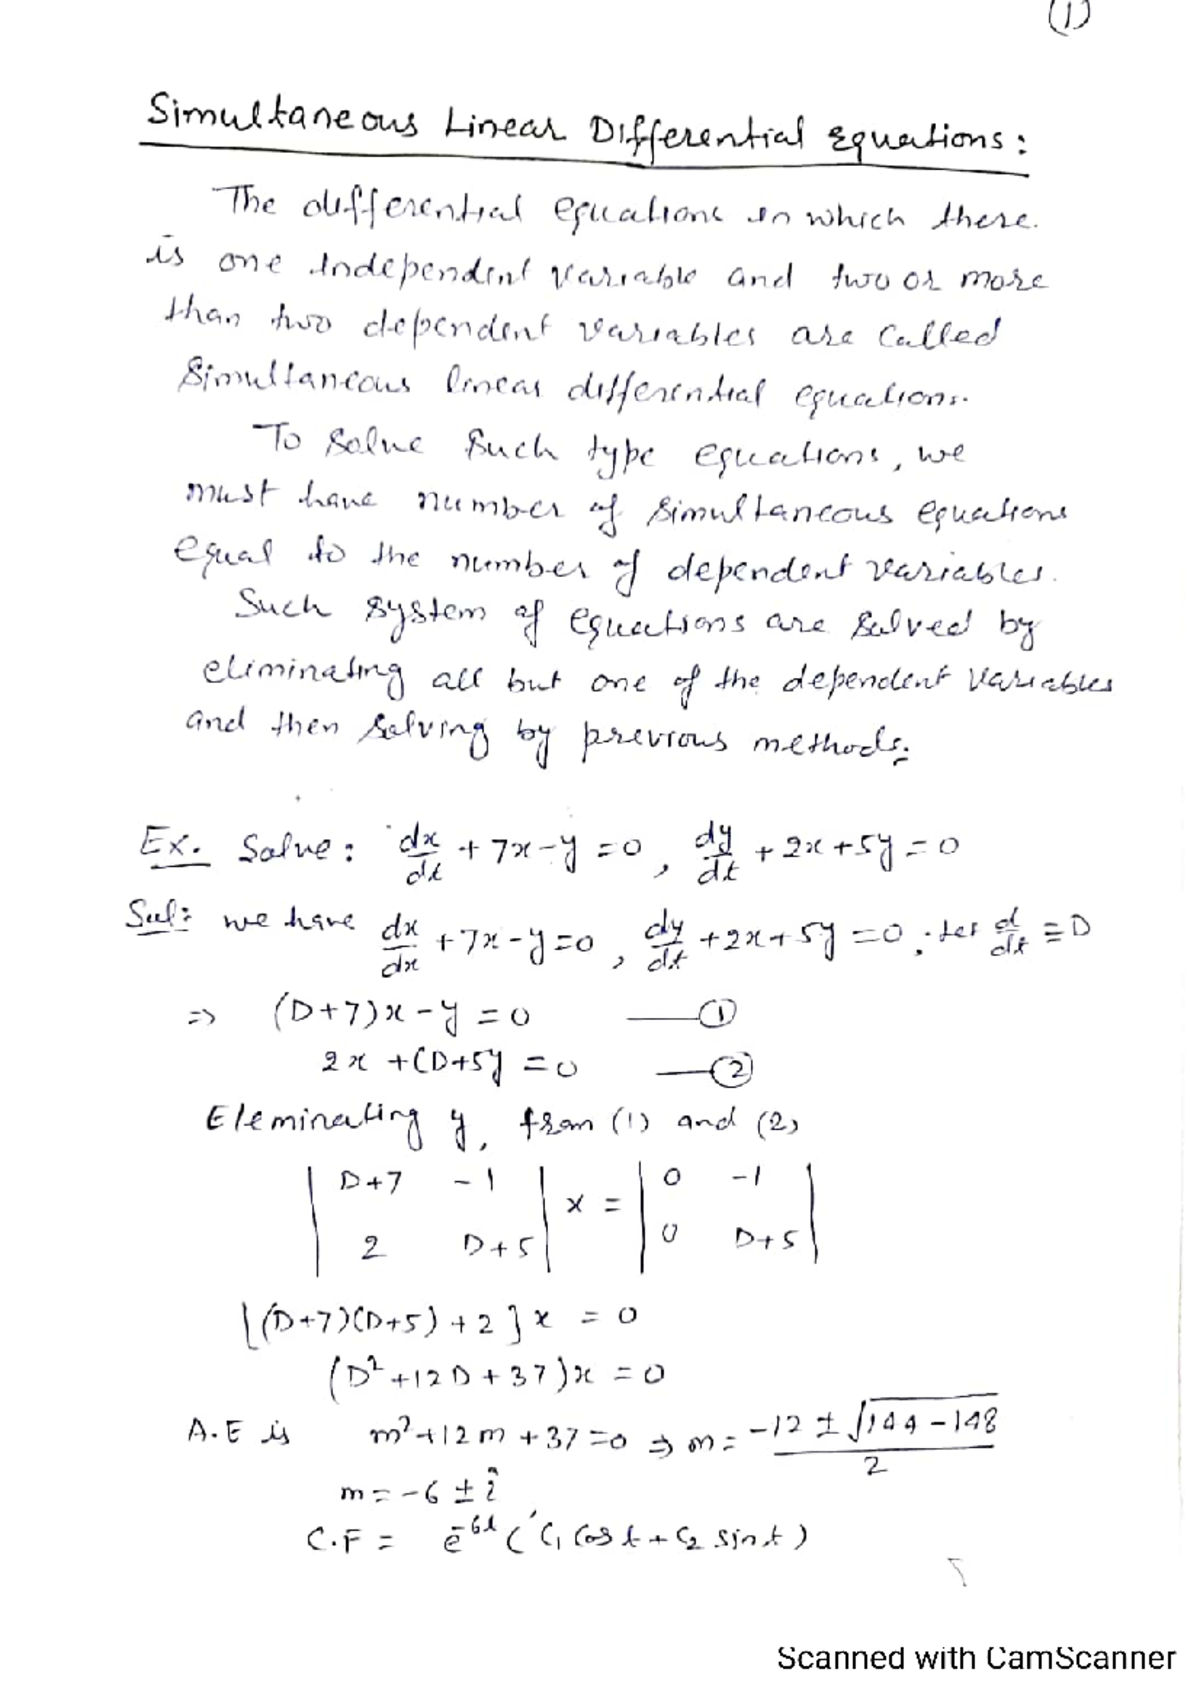 (1)
Simultaneous Linear Differential Equations:
The differential equations in which there.
is one Independent Variable and two or more
than two dependent variables are Called
Simultaneous linear differential equations.
To Solve Such type equations, we
must have number of simultaneous equations
equal to the number of dependent variables.
Such system of equations are solved by
eliminating all but one of the dependent variables
and then solving by previous methods.
Ex. Solve: dx/dt + 7x - y = 0, dy/dt + 2x + 5y = 0
Sol: we have dx/dx + 7x - y = 0, dy/dt + 2x + 5y = 0. Let d/dt ≡ D
=> (D+7)x - y = 0 —— (1)
2x + (D+5y = 0 —— (2)
Eleminating y, from (1) and (2)
| D+7 -1 | x = | 0 -1 |
| 2 D+5 | | 0 D+5 |
[(D+7)(D+5) + 2] x = 0
(D² + 12D + 37)x = 0
A.E is m² + 12m + 37 = 0 => m = (-12 ± √(144 - 148))/2
m = -6 ± i
C.F = e^-6t (C₁ Cos t + C₂ sin t)
Scanned with CamScanner